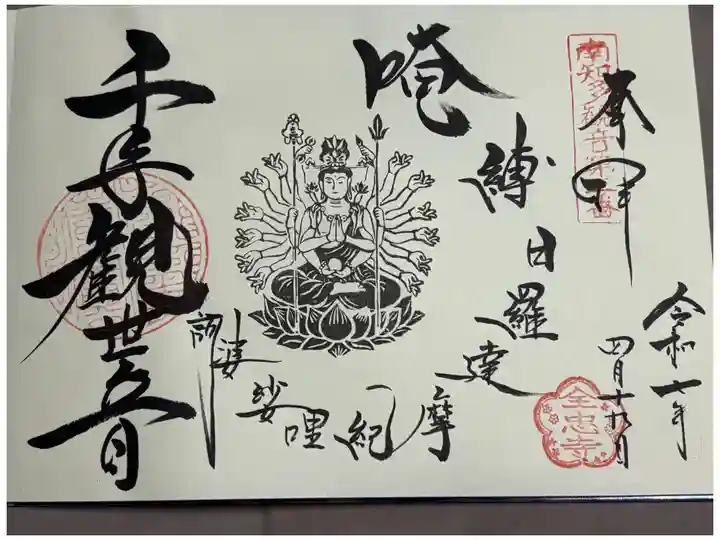 奉拝
南知多観音
令和七年
四月十
全忠寺
唵
縛日羅達
摩紀哩娑婆訶
千手観世音